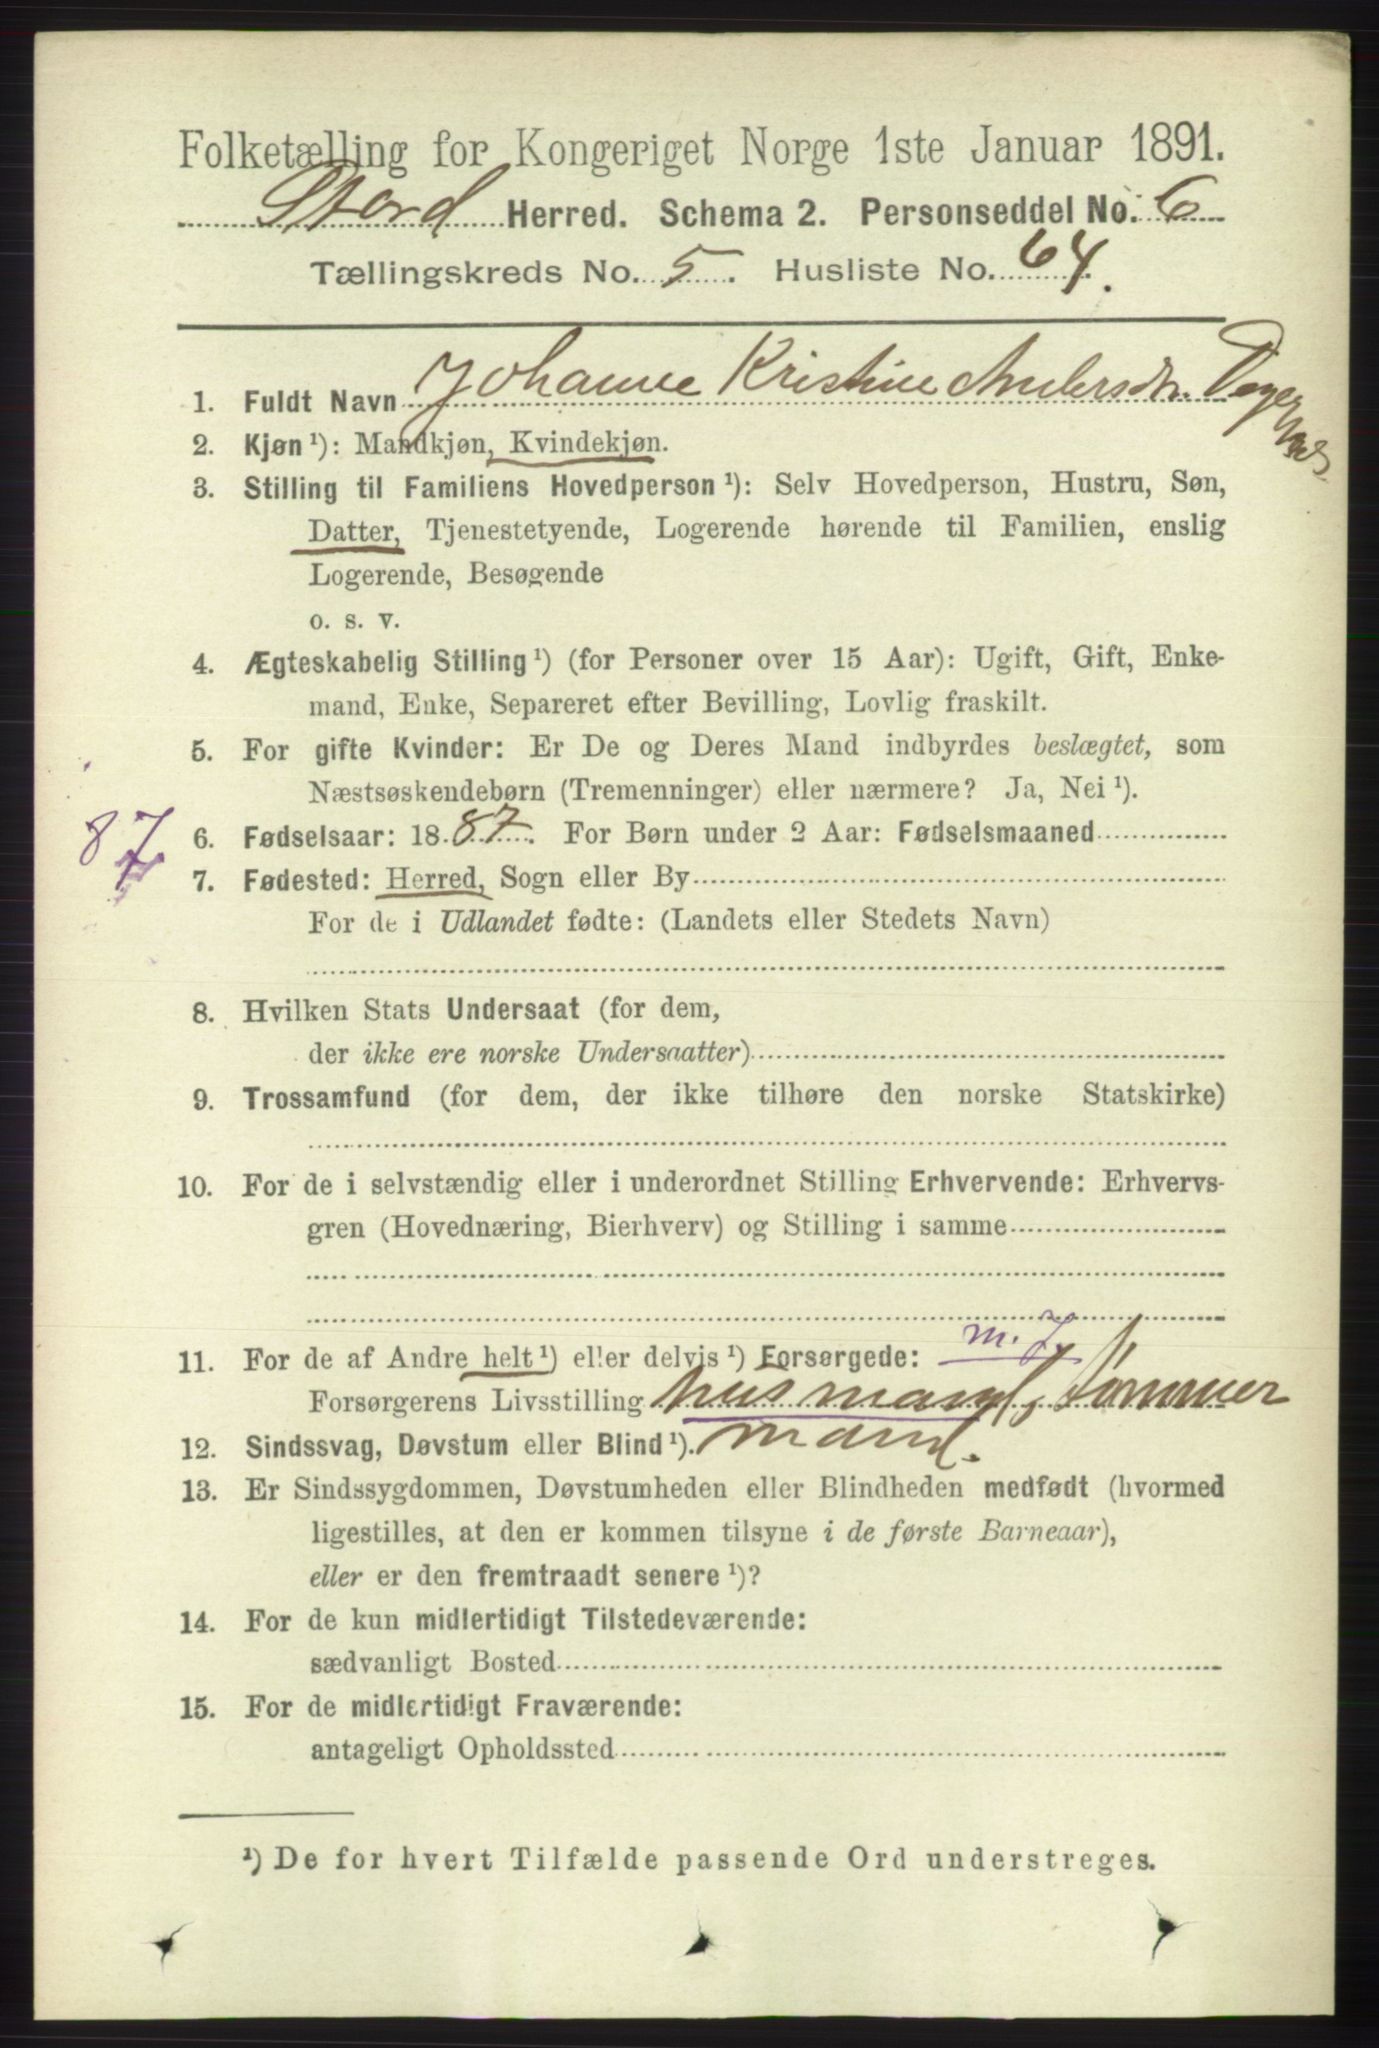 Folketælling for Kongeriget Norge 1ste Januar 1891.
Stord Herred. Schema 2. Personseddel No. 6
Tællingskreds No. 5. Husliste No. 64.
1. Fuldt Navn Johanne Kristine Andersdtr.
2. Kjøn ¹): Mandkjøn, Kvindekjøn.
3. Stilling til Familiens Hovedperson ¹): Selv Hovedperson, Hustru, Søn,
Datter, Tjenestetyende, Logerende hørende til Familien, enslig
Logerende, Besøgende
o. s. v.
4. Ægteskabelig Stilling ¹) (for Personer over 15 Aar): Ugift, Gift, Enke-
mand, Enke, Separeret efter Bevilling, Lovlig fraskilt.
5. For gifte Kvinder: Er De og Deres Mand indbyrdes beslægtet, som
Næstsøskendebørn (Tremenninger) eller nærmere? Ja, Nei ¹).
87
6. Fødselsaar: 1887. For Børn under 2 Aar: Fødselsmaaned
7. Fødested: Herred, Sogn eller By
For de i Udlandet fødte: (Landets eller Stedets Navn)
8. Hvilken Stats Undersaat (for dem,
der ikke ere norske Undersaatter)
9. Trossamfund (for dem, der ikke tilhøre den norske Statskirke)
10. For de i selvstændig eller i underordnet Stilling Erhvervende: Erhvervs-
gren (Hovednæring, Bierhverv) og Stilling i samme
m. J
11. For de af Andre helt ¹) eller delvis ¹) Forsørgede:
Forsørgerens Livsstilling husmand, tømmer
mand.
12. Sindssvag, Døvstum eller Blind ¹).
13. Er Sindssygdommen, Døvstumheden eller Blindheden medfødt (hvormed
ligestilles, at den er kommen tilsyne i de første Barneaar),
eller er den fremtraadt senere ¹)?
14. For de kun midlertidigt Tilstedeværende:
sædvanligt Bosted
15. For de midlertidigt Fraværende:
antageligt Opholdssted
¹) De for hvert Tilfælde passende Ord understreges.